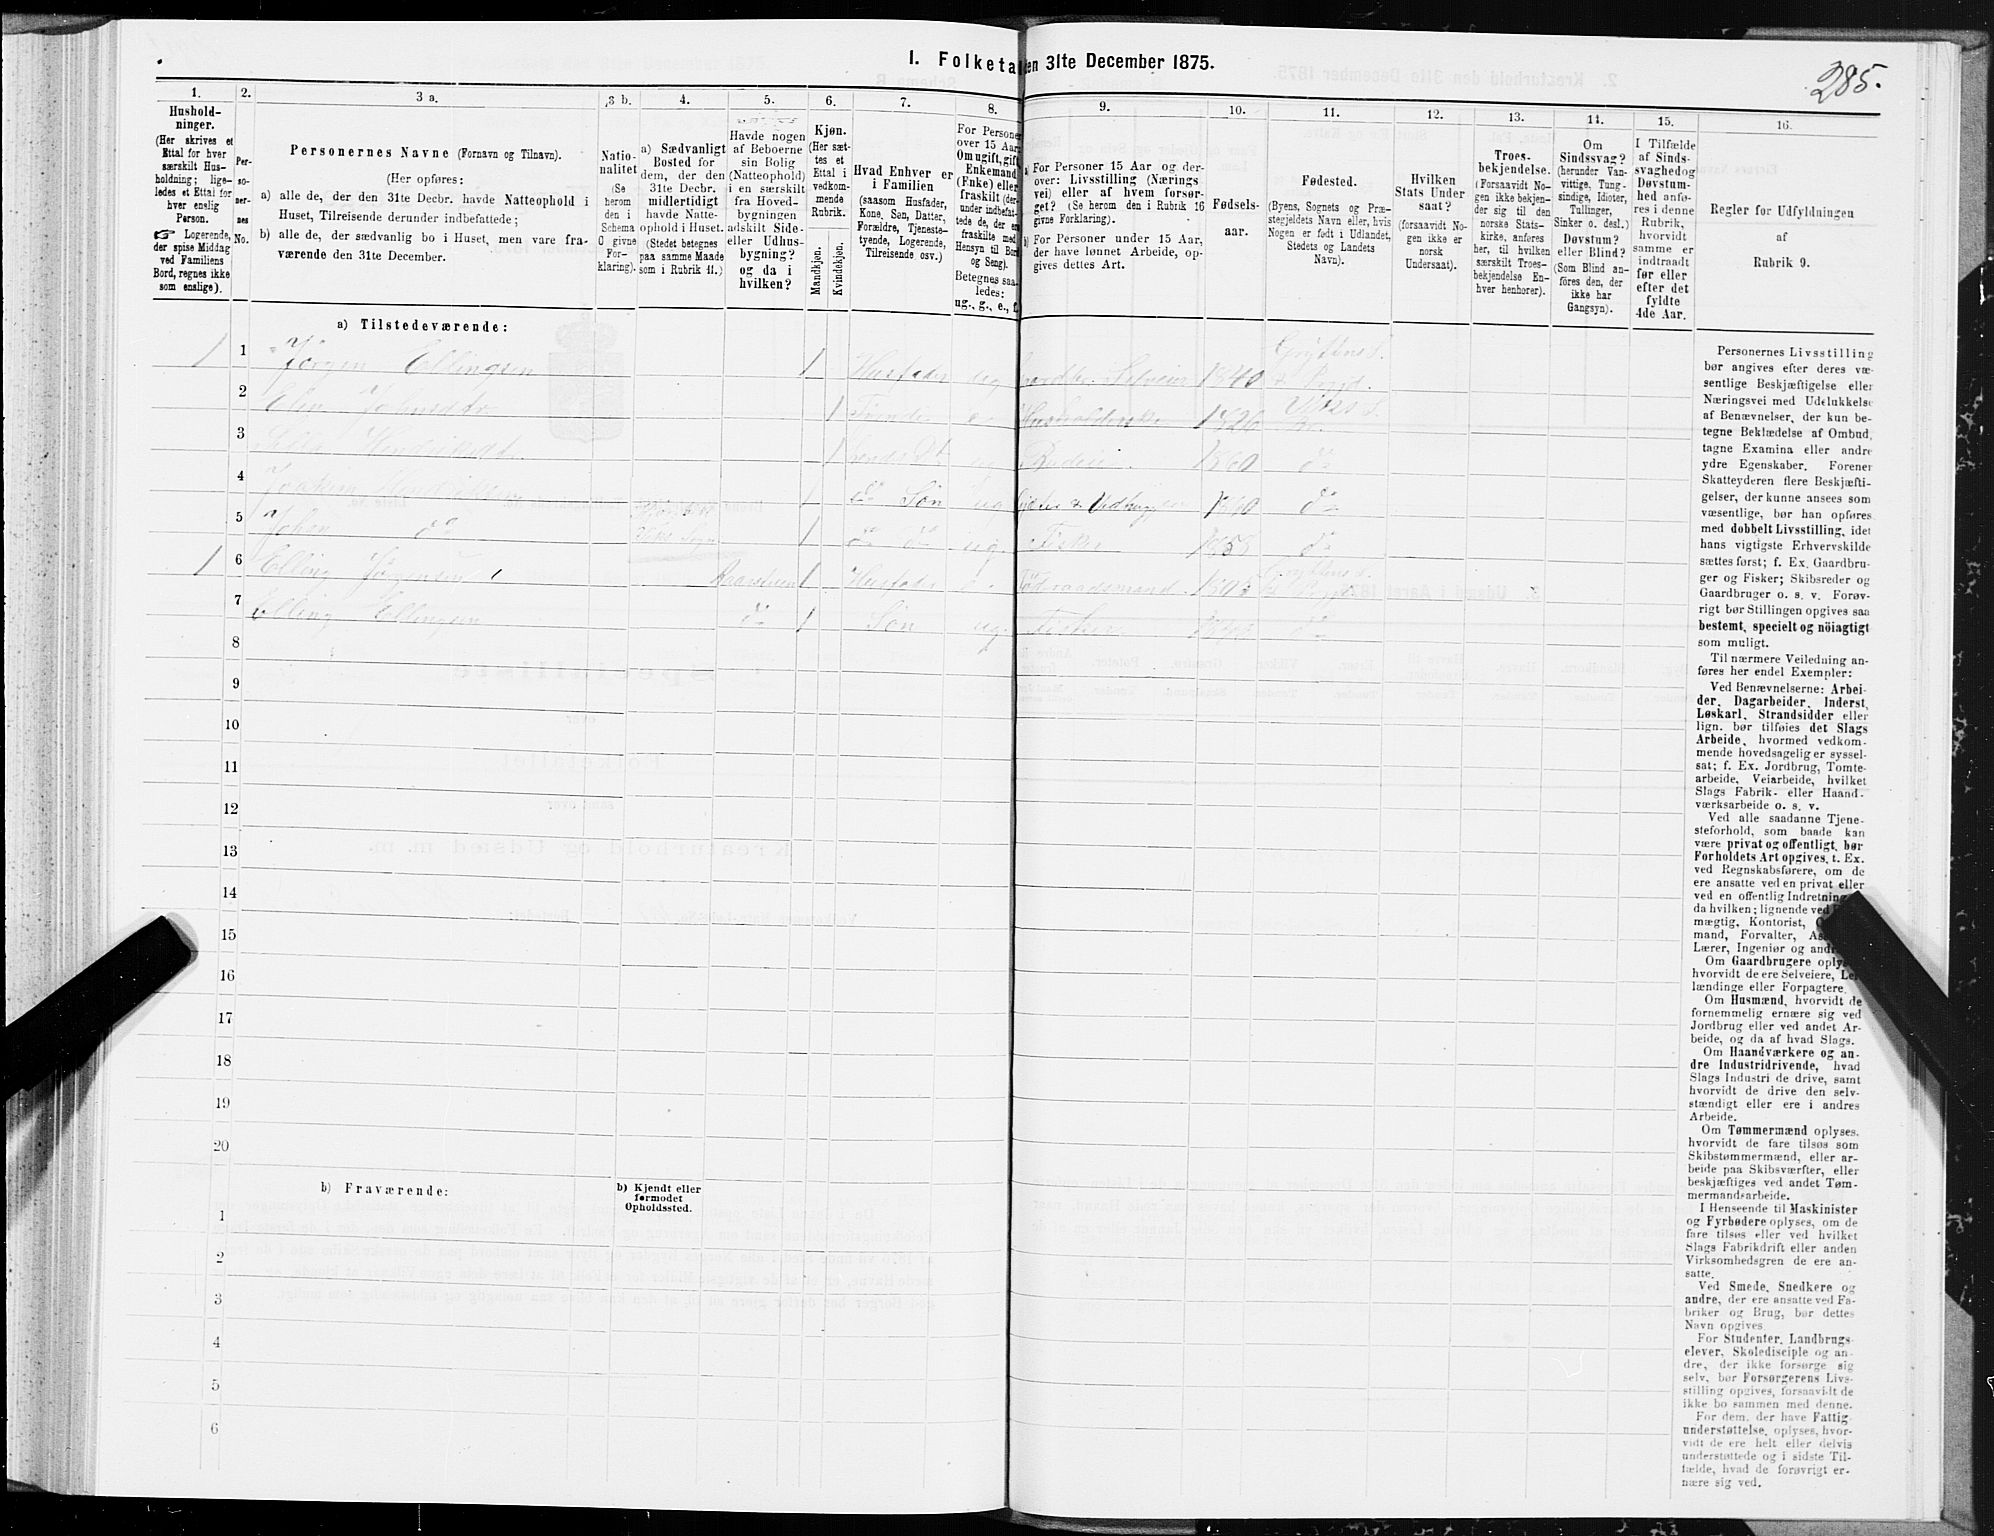 I. Folketa den 31te December 1875.
285.
1.
Hushold-
ninger.
(Her skrives et
Ettal for hver
særskilt Hus-
holdning; lige-
ledes et Ettal for
hver enslig
Person.
☞ Logerende,
der spise Middag
ved Familiens
Bord, regnes ikke
som enslige).
2.
Per-
so-
ner-
nes
No.
3 a.
Personernes Navne (Fornavn og Tilnavn).
(Her opføres:
a) alle de, der den 31te Decbr. havde Natteophold i
Huset, Tilreisende derunder indbefattede;
b) alle de, der sædvanlig bo i Huset, men vare fra-
værende den 31te December.
3 b.
Natio-
nalitet
(Se
herom
den i
Schema
C givne
For-
klaring).
4.
a) Sædvanligt
Bosted for
dem, der den
31te Decbr.
midlertidigt
havde Natte-
ophold i Huset.
(Stedet betegnes
paa samme Maade
som i Rubrik 11.)
5.
Havde nogen
af Beboerne
sin Bolig
(Natteophold)
i en særskilt
fra Hoved-
bygningen
adskilt Side-
eller Udhus-
bygning?
og da i
hvilken?
6.
Kjøn.
(Her sæt-
tes et
Ettal i
vedkom-
mende
Rubrik.
Mandkjøn.
Kvindekjøn.
7.
Hvad Enhver er
i Familien
(saasom Husfader,
Kone, Søn, Datter,
Forældre, Tjeneste-
tyende, Logerende,
Tilreisende osv.)
8.
For Persone
over 15 Aar
Om ugift, gift,
Enkemand
(Enke) eller
fraskilt (der-
under indbefat-
tede de, der ere
fraskilte med
Hensyn til Bord
og Seng).
Betegnes saa-
ledes:
ug., g., e., f.
9.
a) For Personer 15 Aar og der-
over: Livsstilling (Nærings
vei) eller af hvem forsør-
get? (Se herom den i Rubrik 16
givne Forklaring).
b) For Personer under 15 Aar,
der have lønnet Arbeide, op-
gives dettes Art.
10.
Fødsels-
aar.
11.
Fødested.
(Byens, Sognets og Præ-
stegjeldets Navn eller, hvis
Nogen er født i Udlandet,
Stedets og Landets
Navn).
12.
Hvilken
Stats Under
saat?
(forsaavidt No-
gen ikke er
norsk
Undersaat).
13.
Troes-
bekjendelse.
(Forsaavidt No-
gen ikke bekjen-
der sig til den
norske Stats-
kirke, anføres
her, til hvilken
særskilt Troes-
bekjendelse En-
hver henhorer).
14.
Om
Sindssvag?
(herunder Van-
vittige, Tung-
sindige, Idioter,
Tullinger,
Sinker o. desl.)
Døvstum?
eller Blind?
(Som Blind an-
føres den, der
ikke har
Gangsyn).
15.
I Tilfælde
af Sinds-
svaghed og
Døvstum-
hed anfø-
res i denne
Rubrik,
hvorvidt
samme er
indtraadt
før eller
efter det
fyldte
4de Aar.
16.
Regler for Udfyldningen
af
Rubrik 9.
a) Tilstedeværende:
1 1 Jørgen Ellingsen 1 Husfader ug Selveier 1840 Gryttens S.
2 1 e 1826
3 1 1860 do
4 1 do Søn ug 1860 do
5 Johan do 1 do do ug. Fisker do
1 6 Elling Jørgensen 1 Husfader Føderaadsmand Gryttens S.
7 Elling Ellingsen do 1 Søn ug Fisker do
8
9
10
11
12
13
14
15
16
17
18
19
20
b) Fraværende:
b) Kjendt eller
formodet
Opholdssted.
1
2
3
4
5
6
Personernes Livsstilling
bør angives efter deres væ-
sentlige Beskjæftigelse eller
Næringsvei med Udelukkelse
af Benævnelser, der kun be-
tegne Beklædelse af Ombud,
tagne Examina eller andre
ydre Egenskaber. Forener
Skatteyderen flere Beskjæfti-
gelser, der kunne ansees som
væsentlige, bør han opføres
med dobbelt Livsstilling, idet
hans vigtigste Erhvervskilde
sættes først; f. Ex. Gaardbru-
ger og Fisker; Skibsreder og
Gaardbruger o. s. v. Forøv-
rigt bør Stillingen opgives saa
bestemt, specielt og nöiagtigt
som muligt.
Til nærmere Veiledning an-
føres her endel Exempler:
Ved Benævnelserne: Arbei-
der, Dagarbeider, Inderst,
Løskarl, Strandsidder eller
lign. bør tilføies det Slags
Arbeide, hvormed vedkom-
mende hovedsagelig er syssel-
sat; f. Ex. Jordbrug, Tomte-
arbeide, Veiarbeide, hvilket
Slags Fabrik- eller Haand-
værksarbeide o. s. v.
Ved alle saadanne Tjene-
steforhold, som baade kan
være privat og offentligt, bør
Forholdets Art opgives, t. Ex.
ved Regnskabsførere, om de
ere ansatte ved en privat eller
ved en offentlig Indretning
da hvilken; lignende ved
mægtig, Kontorist,
mand, Forvalter,
Lærer, Ingeniør og
Om Gaardbrugere oply
hvorvidt de ere Selveiere, Le
lændinge eller Forpagtere.
Om Husmænd, hvorvidt de
fornemmelig ernære sig ved
Jordbrug eller ved andet Ar-
beide, og da af hvad Slags.
Om Haandværkere og an-
dre Industridrivende, hvad
Slags Industri de drive, samt
hvorvidt de drive den selv-
stændigt eller ere i andres
Arbeide.
Om Tømmermænd oplyses,
hvorvidt de fare tilsøs som
Skibstømmermænd, eller ar-
beide paa Skibsværfter, eller
beskjæftiges ved andet Tøm-
mermandsarbeide.
I Henseende til Maskinister
og Fyrbødere oplyses, om de
fare tilsøs eller ved hvilket
Slags Fabrikdrift eller anden
Virksomhedsgren de ere an-
satte.
Ved Smede, Snedkere og
andre, der ere ansatte ved Fa-
briker og Brug, bør dettes
Navn opgives.
For Studenter, Landbrugs-
elever, Skoledisciple og an-
dre, der ikke forsørge sig
selv, bør Forsørgerens Livs-
stilling opgives, forsaavidt de
ikke bo sammen med denne.
For dem, der have Fattig-
understøttelse, oplyses, hvor-
vidt de ere helt eller delvis
understøttede og i sidste Til-
fælde, hvad de forøvrigt er-
nære sig ved.